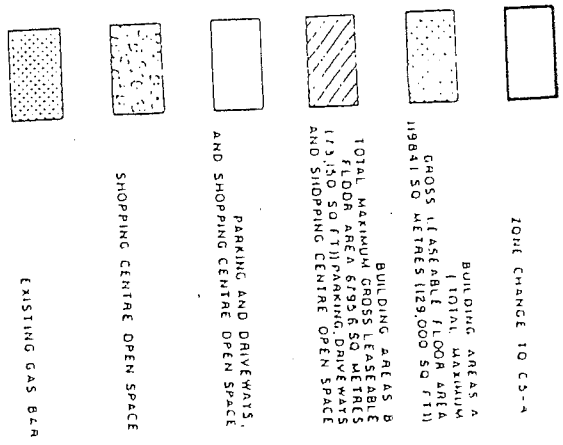 ZONE CHANGE TO CS-4
BUILDING AREAS A
(TOTAL MAXIMUM
GROSS LEASEABLE FLOOR AREA
11984.1 SQ METRES (129,000 SQ FT))
BUILDING AREAS B
TOTAL MAXIMUM GROSS LEASEABLE
FLOOR AREA 6795.6 SQ METRES
(73,150 SQ FT)) PARKING, DRIVEWAYS
AND SHOPPING CENTRE OPEN SPACE
PARKING AND DRIVEWAYS,
AND SHOPPING CENTRE OPEN SPACE
SHOPPING CENTRE OPEN SPACE
EXISTING GAS BAR